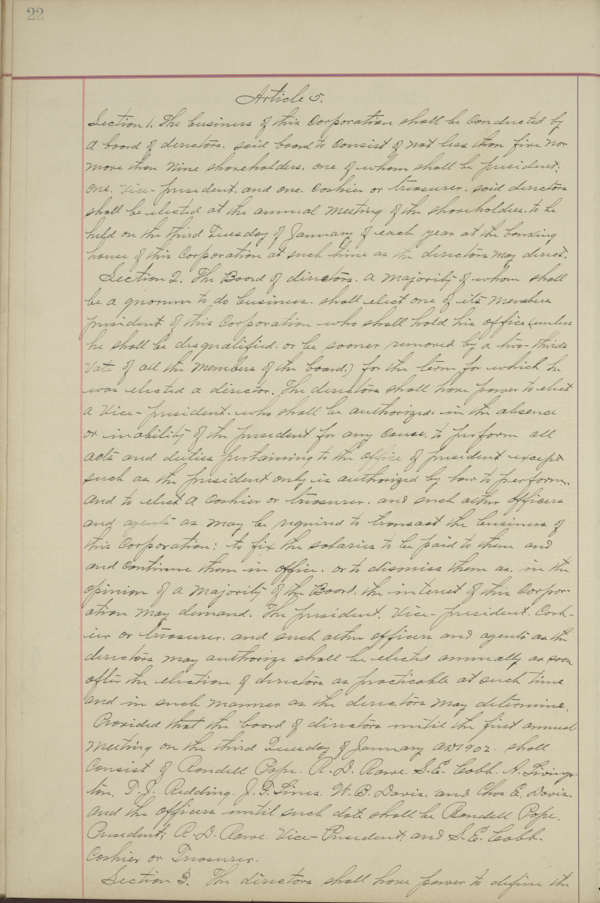 22
Article 5.
Section 1. The business of this Corporation shall be conducted by
a board of directors. said board to consist of not less than five nor
more than nine shareholders. one of whom shall be president.
one. Vice-president. and one. Cashier or treasurer. said directors
shall be elected at the annual meeting of the shareholders. to be
held on the third Tuesday of January of each year at the banking
house of this Corporation at such time as the directors may direct.
Section 2. The Board of directors. a majority of whom shall
be a quorum to do business. shall elect one of its members
president of this Corporation who shall hold his office (unless
he shall be disqualified. or be sooner removed by a two-thirds
vote of all the members of the board.) for the term for which he
was elected a director. The directors shall have power to elect
a Vice-president. who shall be authorized. in the absence
or inability of the president for any cause. to perform all
acts and duties pertaining to the office of president except
such as the president only is authorized by law to perform.
and to elect a Cashier or treasurer. and such other officers
and agents as may be required to transact the business of
this Corporation: to fix the salaries to be paid to them and
and continue them in office. or to dismiss them as. in the
opinion of a majority of the Board. the interest of this Corpor-
ation may demand. The president. Vice-president. Cash-
ier or treasurer. and such other officers and agents as the
directors may authorize shall be elected annually as soon
after the election of directors as practicable at such time
and in such manner as the directors may determine.
Provided that the board of directors until the first annual
meeting on the third Tuesday of January AD 1902. shall
consist of Rendell Pope. A.D. Rowe. S.E. Cobb. A. Livings-
ton. T.J. Redding. J.F. Sines. W.B. Davis. and Chas E. Davis.
and the officers until such date shall be Rendell Pope.
President; A.D. Rowe. Vice-President; and S.E. Cobb.
Cashier or Treasurer.
Section 3. The directors shall have power to define the